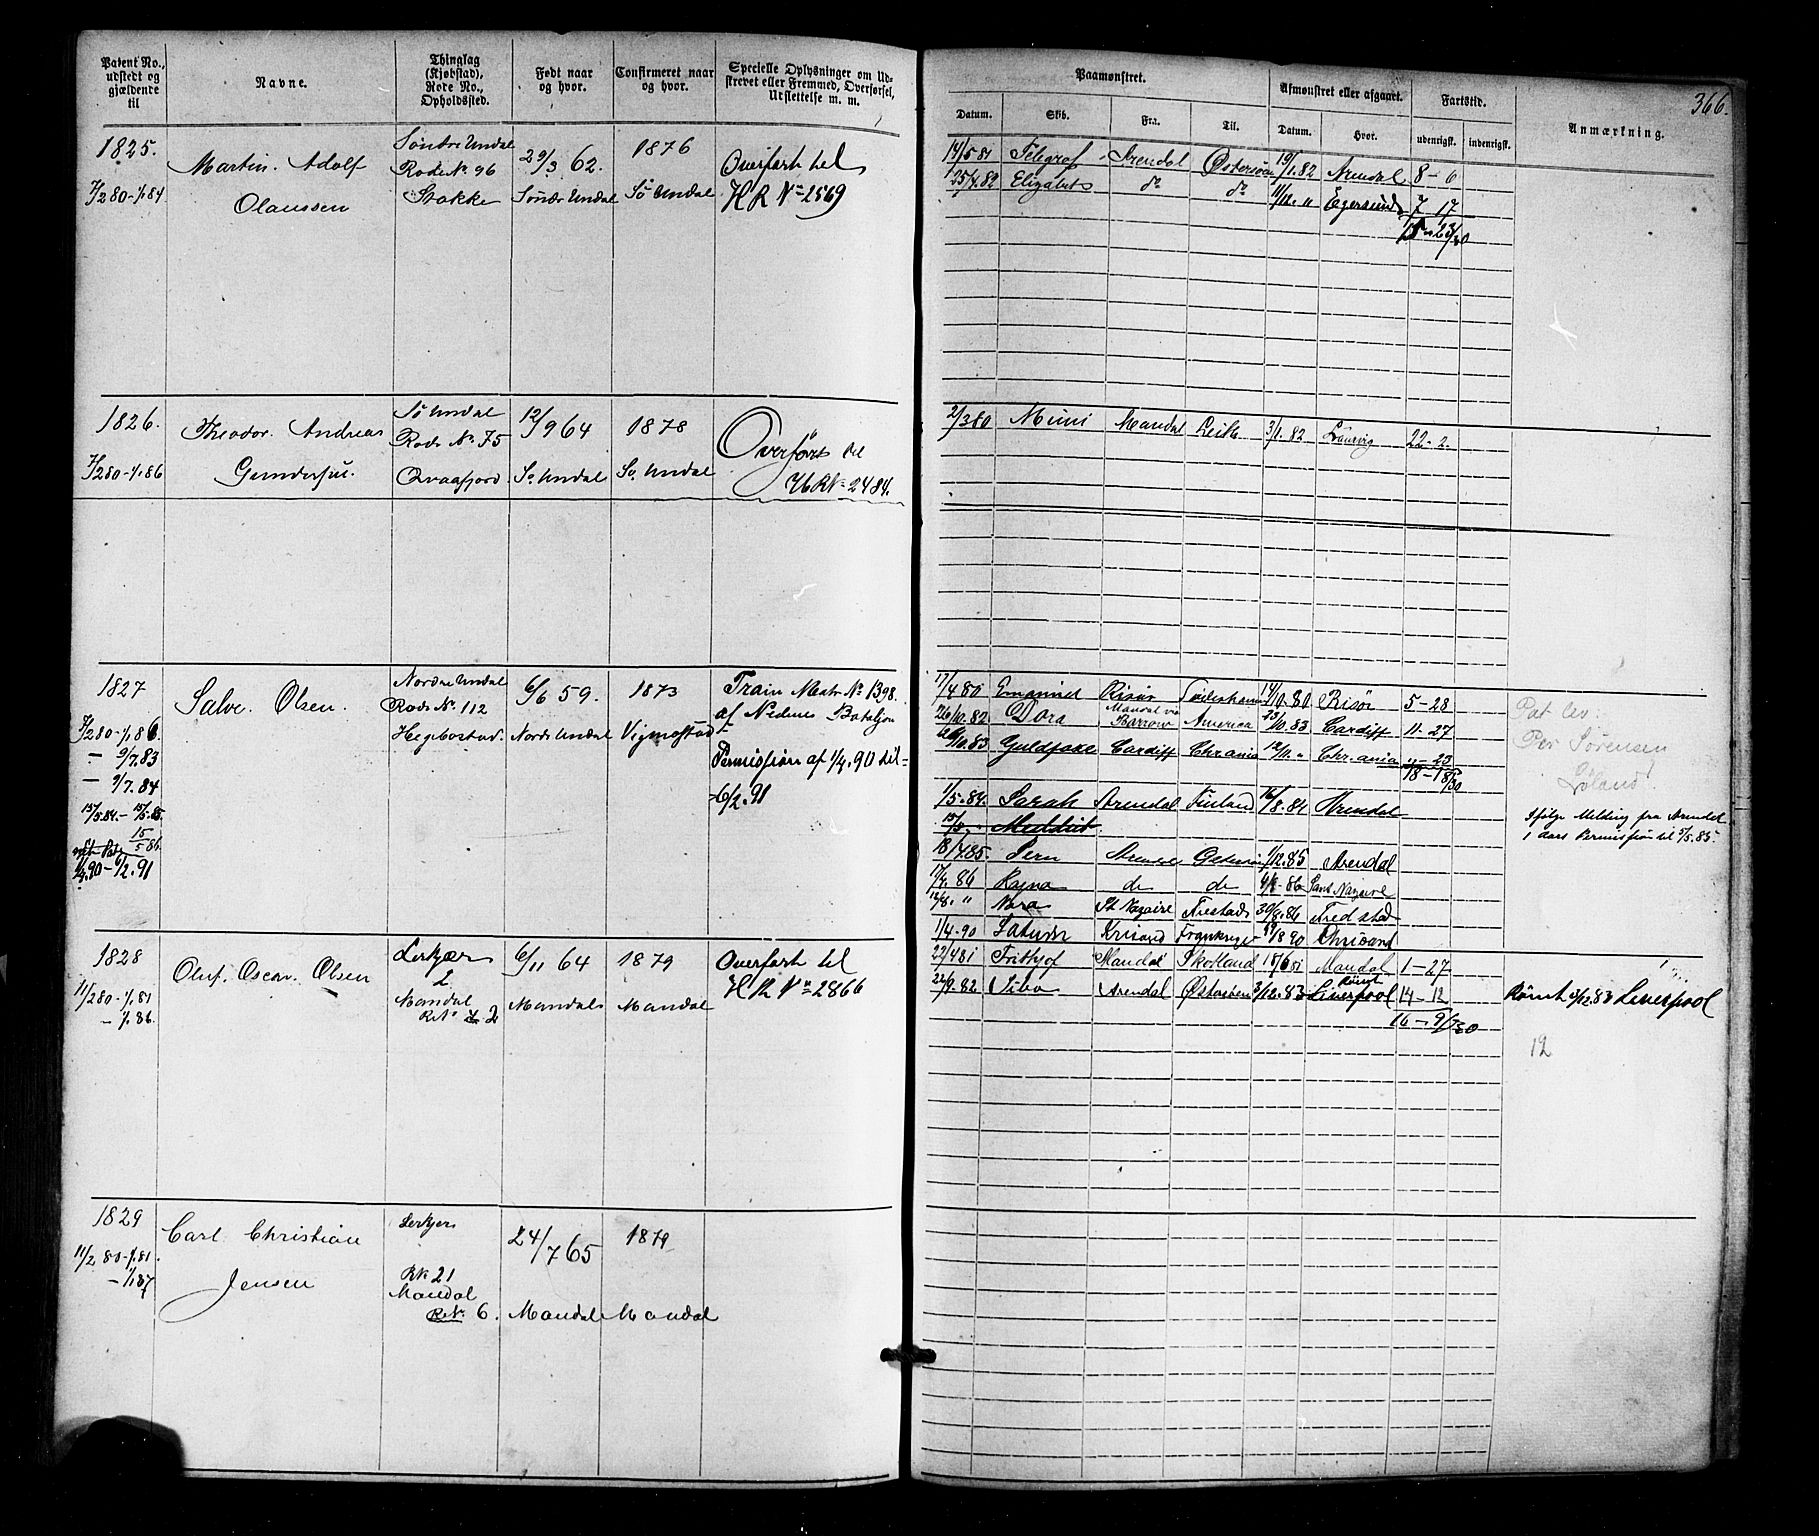 Patent No., udstedt og gjældende til
Navne.
Thinglag (Kjøbstad), Rode No., Opholdssted.
Født naar og hvor.
Confirmeret naar og hvor.
Specielle Oplysninger om Udskrevet eller Fremmed, Overførsel, Udslettelse m. m.
Paamønstret.
Afmønstret eller afgaaet.
Fartstid.
Anmærkning.
366.
Datum.
Skib.
Fra.
Til.
Datum.
Hvor.
udenrigsk.
indenrigsk.
1825.
7/2 80 - 1/1 84
Martin Adolf
Olaussen
Søndre Undal
Rode No. 96
Stokke
29/3 62.
Søndr Undal
1876
Sø Undal
Overført til
H R No 2569
14/5 81 Telegraf Arendal Østersøen 19/1.82 Arendal 8-6
25/4.82 Elizabets do do 11/12. " Egersund 7 17
15-23/30
1826.
7/2 80 - 1/1 86
Theodor Andreas
Gundersen.
Sø Undal
Rode No 75
Qvaafjord
12/9 64
Sø Undal
1878
Sø Undal
Overført til
H R No 2484.
2/3 80 Mimi Mandal Leith 3/1.82 Laurvig 22-2.
1827
7/2 80 - 1/1 86
- 9/7.83
- 9/7.84
15/5 84. - 15/5.85.
15/5 86
1/4.90 - 6/2.91
Salve Olsen.
Nordre Undal
Rode No. 112
Hegbostad.
6/6 59.
Nordr Undal
1873
Vigmostad
Train Matr No 1398.
af Nedenes Bataljon
Permission af 1/4.90 til
6/2.91
17/4 80 Emanuel Risør Söderhamn 14/10.80 Risør 5-28
26/10.82 Dora Mandal via Barrow America 23/10.83 Cardiff 11-27
26/10.83 Guldfaxe Cardiff Chrania 12/11. " Chr.ania 23
18-18/30
1/5.84. Sarah Arendal Finland 16/8.84 Arendal
15/5 Meddelt
18/4 85. Arendal 1/12.85 Arendal
17/4.86 Ragna de de Sant Nazaire
12/8. " Nora St Nazaire Frestads 30/8.86 Fredstad
1/4-90 Saturn Krisand Frankrige Chrisand
Pat lev.
Per Sørensen
Løland
Ifølge Melding fra Arendal
1 Aars Permission til 5/5.85.
1828
11/2 80 - 1/1.81
- 1/1.86.
Oluf Oscar Olsen
Lerkjær
2
Mandal
R No 2
6/11 64
Mandal
1879
Mandal
Overført til
H R No 2866
22/4 81 Frithjof Mandal Skotland Mandal 1-27
22/9.82 Arendal Østersøen 3/12.83 Rømt Liverpool 14-12
16-9/30
Rømt 3/12.83 Liverpool
12
1829
11/2 80 - 1/1.81.
- 1/1 87
Carl Christian
Jensen
Lerkjær
RN 21
Mandal
R.N. 6.
24/7 65
Mandal
1879
Mandal